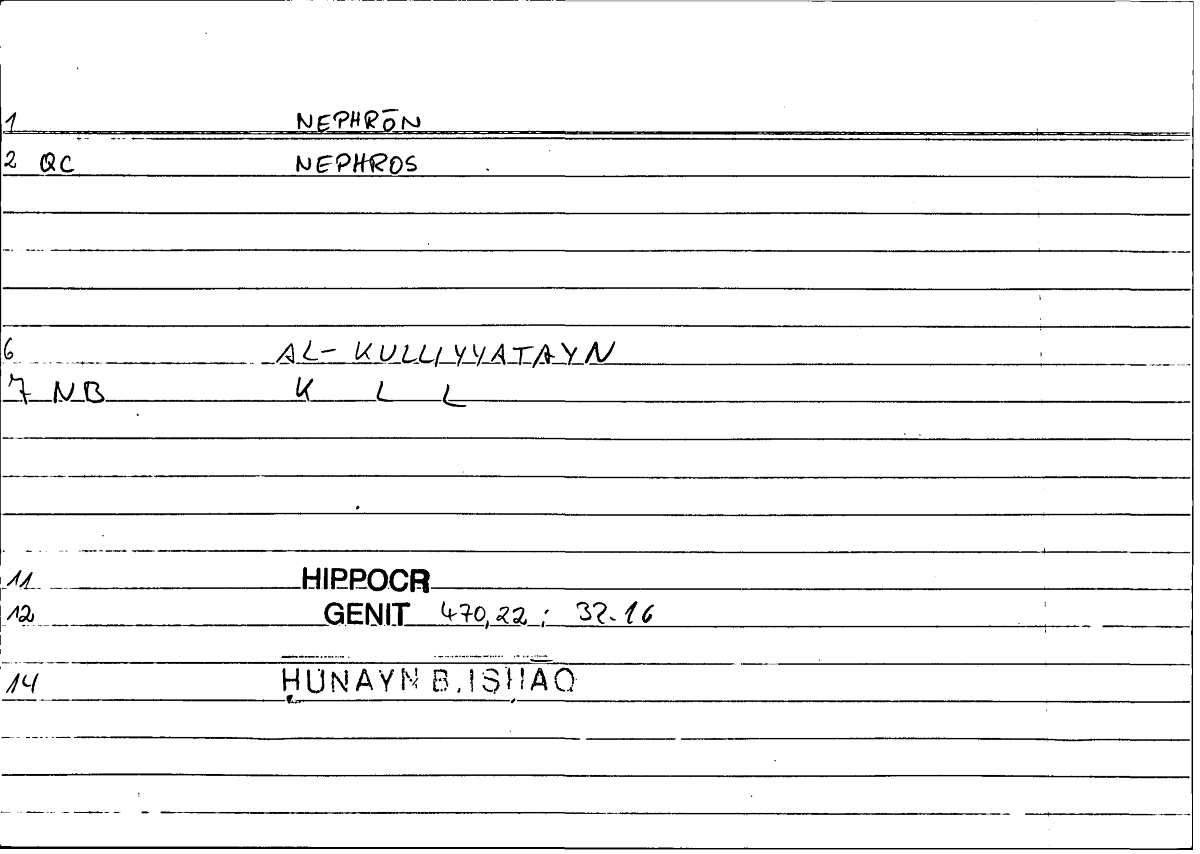 1 NEPHRŌN
2 QC NEPHROS
6 AL-KULLIYYATAYN
7 NB K L L
11 HIPPOCR
12 GENIT 470,22 ; 32.16
14 ḤUNAYN B. ISḤĀQ